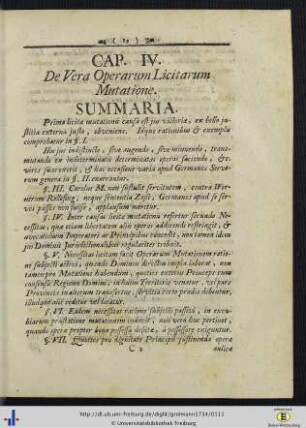 ( 19 )
CAP. IV.
De Vera Operarum Licitarum
Mutatione.
SUMMARIA.
Prima licita mutationis causa est jus victoriæ, ex bello ju-
stitia externa justo, obveniens. Idque rationibus & exemplis
comprobatur in §. I.
Hoc jus indistincte, sive augendo, sive minuendo, trans-
mutando ex indeterminatis determinatas operas faciendo, &
vires suas exerit, & hac occasione varia apud Germanos Servo-
rum genera in §. II. enarrantur.
§. III. Carolus M. non sustulit servitutem, contra
neque sententia Germanos apud se ser-
vos passos non fuisse, applausum meretur.
§. IV. Inter causas licita mutationis refertur secundo Ne-
cessitas, qua etiam libertatem aliis operis addicendo resstringit, &
avocationem Imperatori ac Principibus concedit, non tamen idem
jus Dominis Jurisdictionalibus regulariter tribuit.
§. V. Necessitas licitam facit Operarum Mutationem ratio-
ne subjecti activi, quando Dominus directus implo laborat, non
tamen pro Mutatione habendum, quoties extrenus Princeps cum
consensu Regentis Domini, in hujus Territoriis venatur, vel pars
Provinciæ in alterum transfertur, servitia certo prædio debentur,
illudque alii cedatur vel locatur.
§. VI. Eadem necessitas ratione subjecti passivi, in
præstatione mutationem inducit, non vero huc pertinet,
quando opera propter bona possessa debita, à possessore exiguntur.
§. VII. Quoties pro dignitate Principis sustinenda opera
C 2
antica
http://dl.ub.uni-freiburg.de/diglit/grolmann1734/0111
© Universitätsbibliothek Freiburg